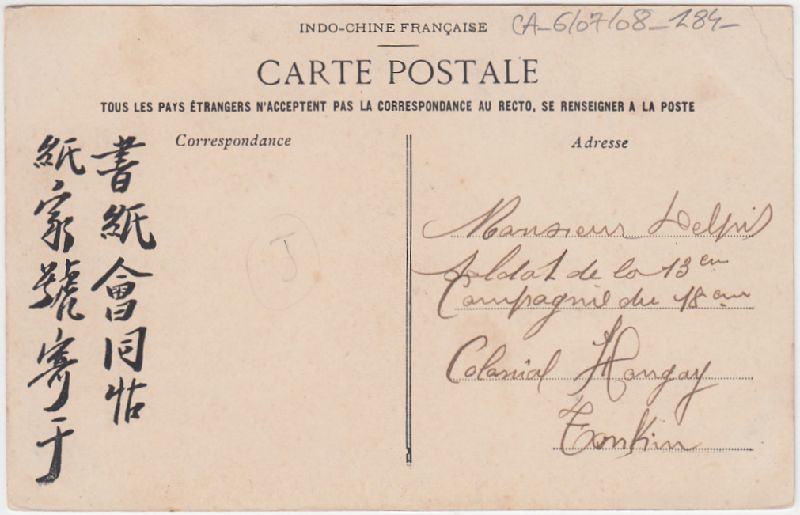 INDO-CHINE FRANÇAISE
CA-6/07/08-184-
CARTE POSTALE
TOUS LES PAYS ÉTRANGERS N'ACCEPTENT PAS LA CORRESPONDANCE AU RECTO, SE RENSEIGNER A LA POSTE
Correspondance
書紙會同帖
紙家號寄于
J
Adresse
Monsieur Delpit
Soldat de la 13 em
Compagnie du 18 em
Colonial Hongay
Tonkin